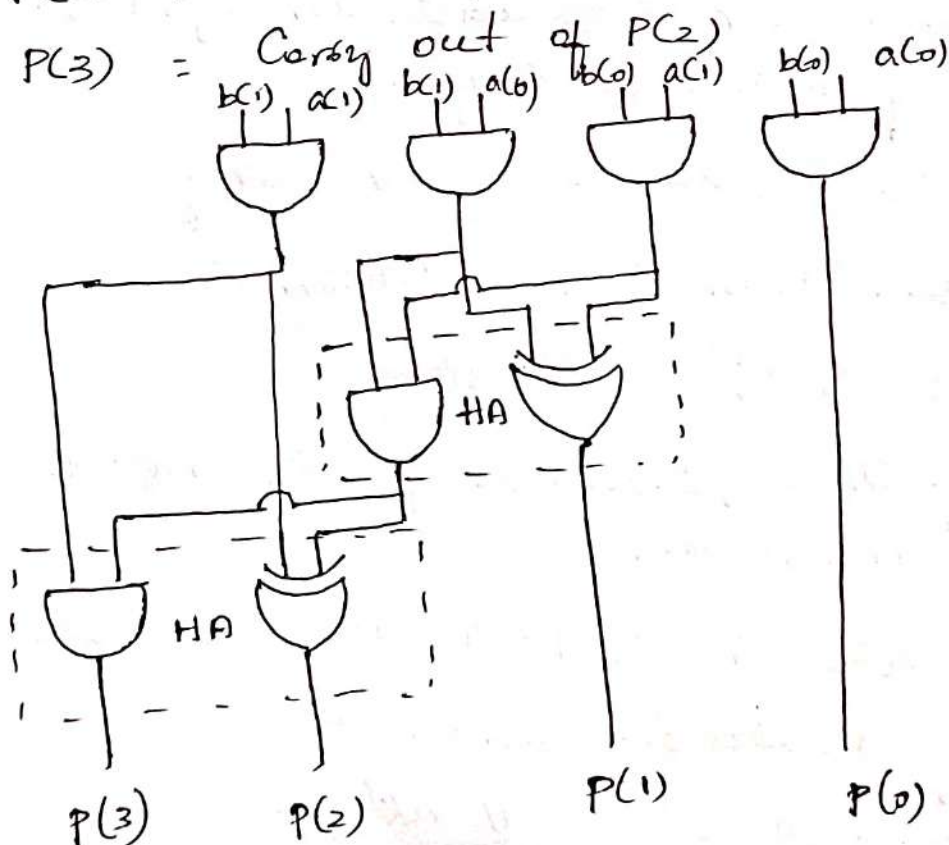 P(3) = Carry out of P(2)
b(1) a(1) b(1) a(0) b(0) a(1) b(0) a(0)
HA
HA
P(3) P(2) P(1) P(0)